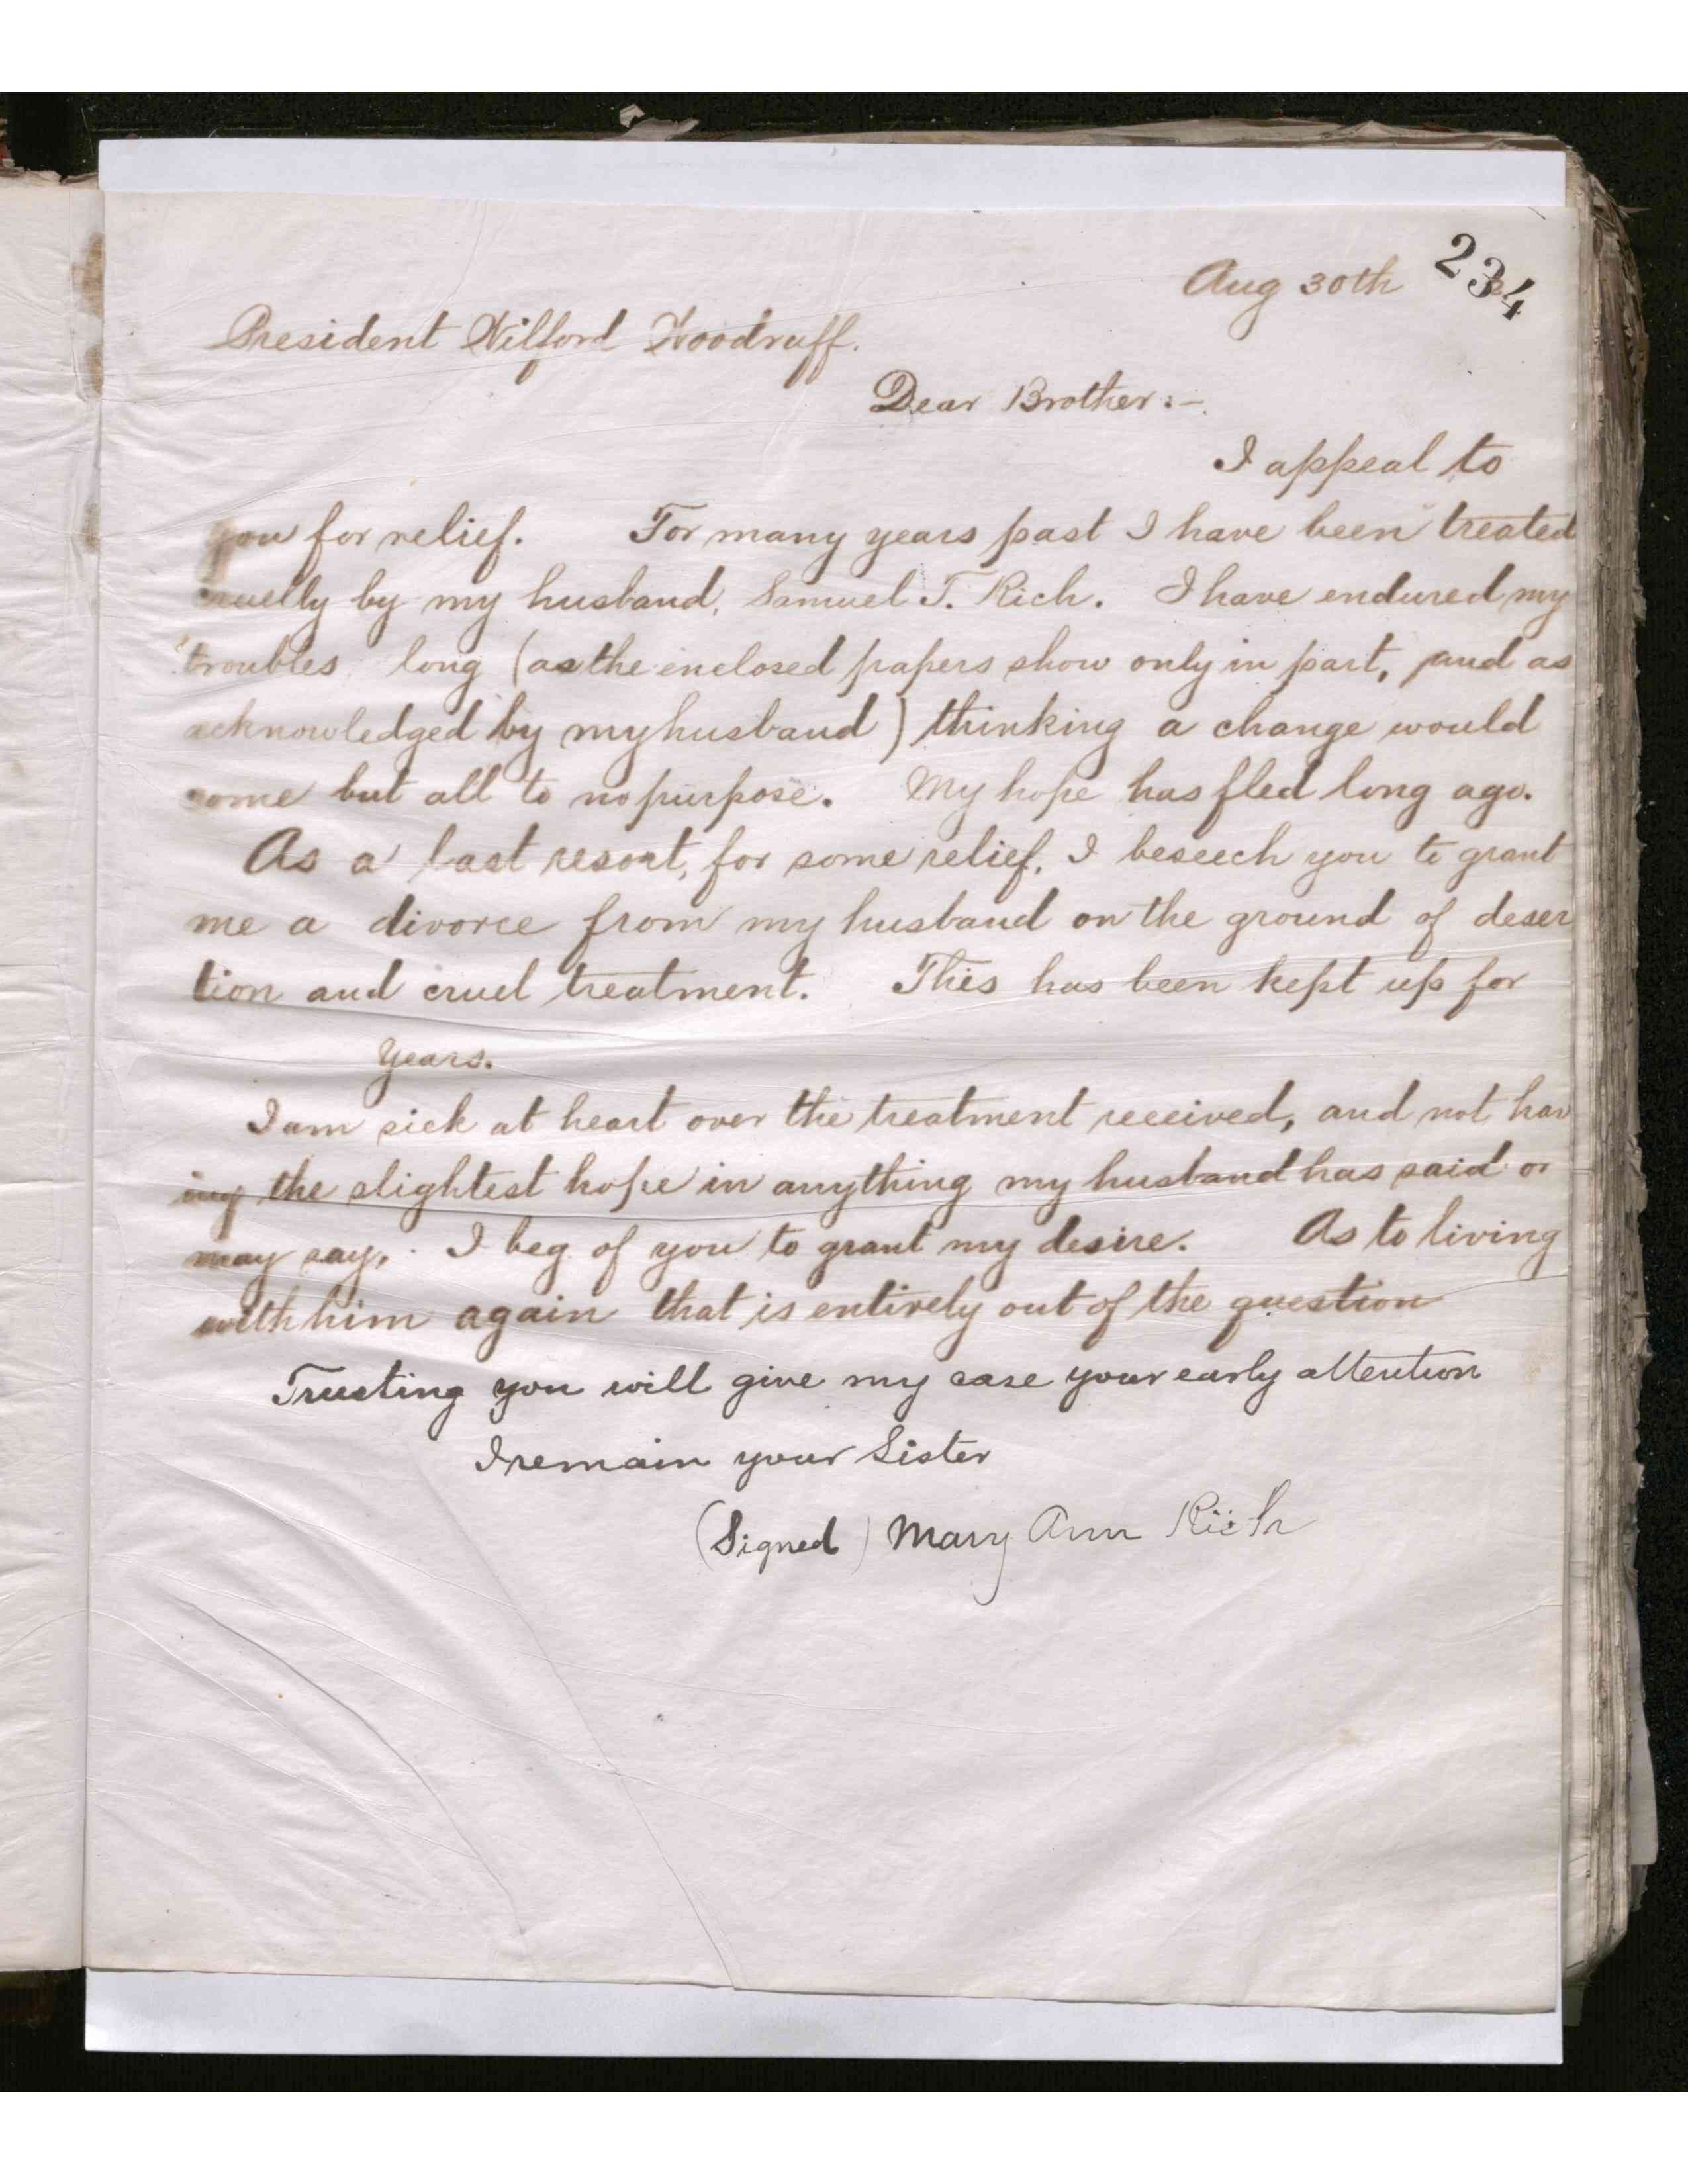 Aug 30th 234
President Wilford Woodruff.
Dear Brother:-
I appeal to
you for relief. For many years past I have been treated
cruelly by my husband, Samuel T. Rich. I have endured my
troubles long (as the enclosed papers show only in part, and as
acknowledged by my husband) thinking a change would
come but all to no purpose. My hope has fled long ago.
As a last resort, for some relief, I beseech you to grant
me a divorce from my husband on the ground of deser
tion and cruel treatment. This has been kept up for
years.
I am sick at heart over the treatment received, and not hav
ing the slightest hope in anything my husband has said or
may say, I beg of you to grant my desire. As to living
with him again that is entirely out of the question
Trusting you will give my case your early attention
I remain your Sister
(Signed) Mary Ann Rich